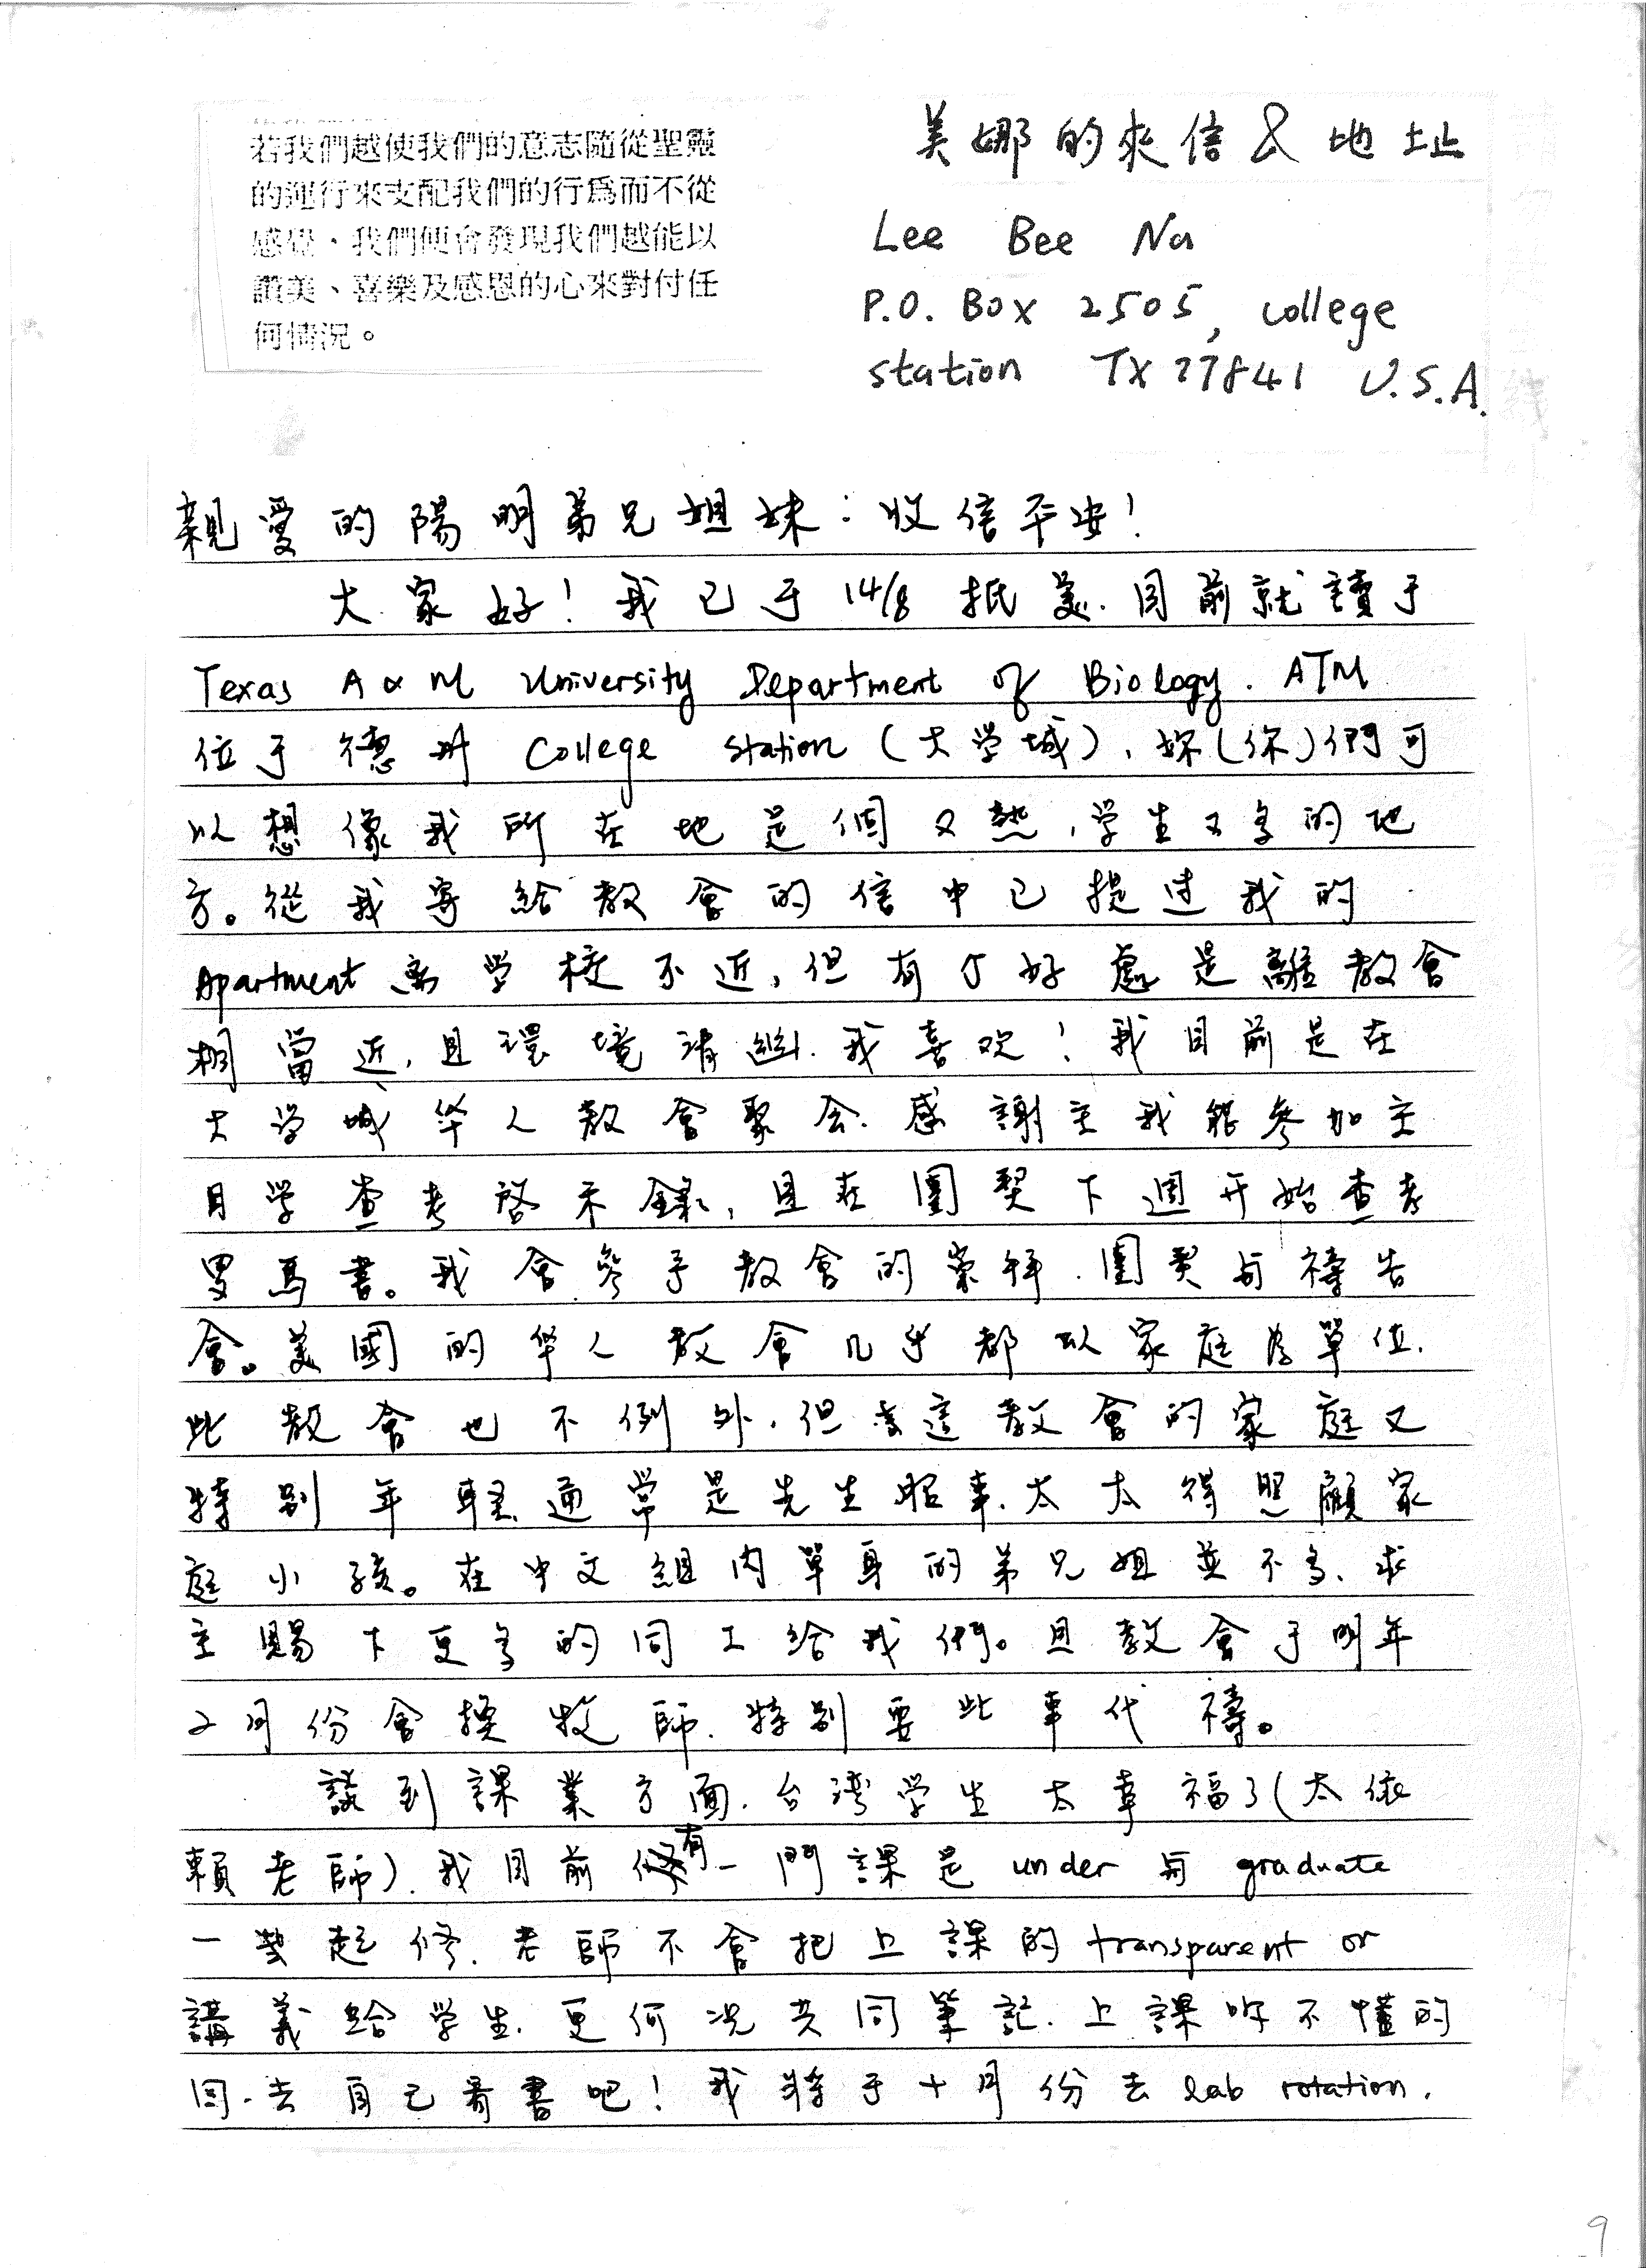 若我們越使我們的意志隨從聖靈
的運行來支配我們的行為而不從
感覺、我們便會發現我們越能以
讚美、喜樂及感恩的心來對付任
何情況。
美娜的來信&地址
Lee Bee Na
P.O. Box 2505, college
station TX 77841 U.S.A.
親愛的陽明弟兄姐妹:收信平安!
大家好!我已于14/8抵美.目前就讀于
Texas A & M University Department of Biology. ATM
位于德州 College station (大学城),妳(你)們可
以想像我所在地是個又熱,学生又多的地
方。從我寄給教會的信中已提过我的
Apartment 离学校不近,但有个好處是離教會
相當近,且環境清幽.我喜欢!我目前是在
大学城华人教會聚会.感謝主我能參加主
日学查考啓示錄,且在團契下週开始查考
罗馬書。我會參予教會的崇拜.團契与禱告
會。美國的华人教會几乎都以家庭為單位.
此教會也不例外.但這教會的家庭又
特別年輕.通常是先生唸書.太太得照顧家
庭小孩。在中文組內單身的弟兄姐並不多.求
主賜下更多的同工給我們。且教會于明年
2月份會換牧師.特別要此事代禱。
談到課業方面.台湾学生太幸福了(太依
賴老師).我目前有一門課是 under 与 graduate
一共起修.老師不會把上課的 transparent or
講義給学生.更何况共同筆記.上課听不懂的
同.去自己看書吧!我将于十月份去 lab rotation.
9